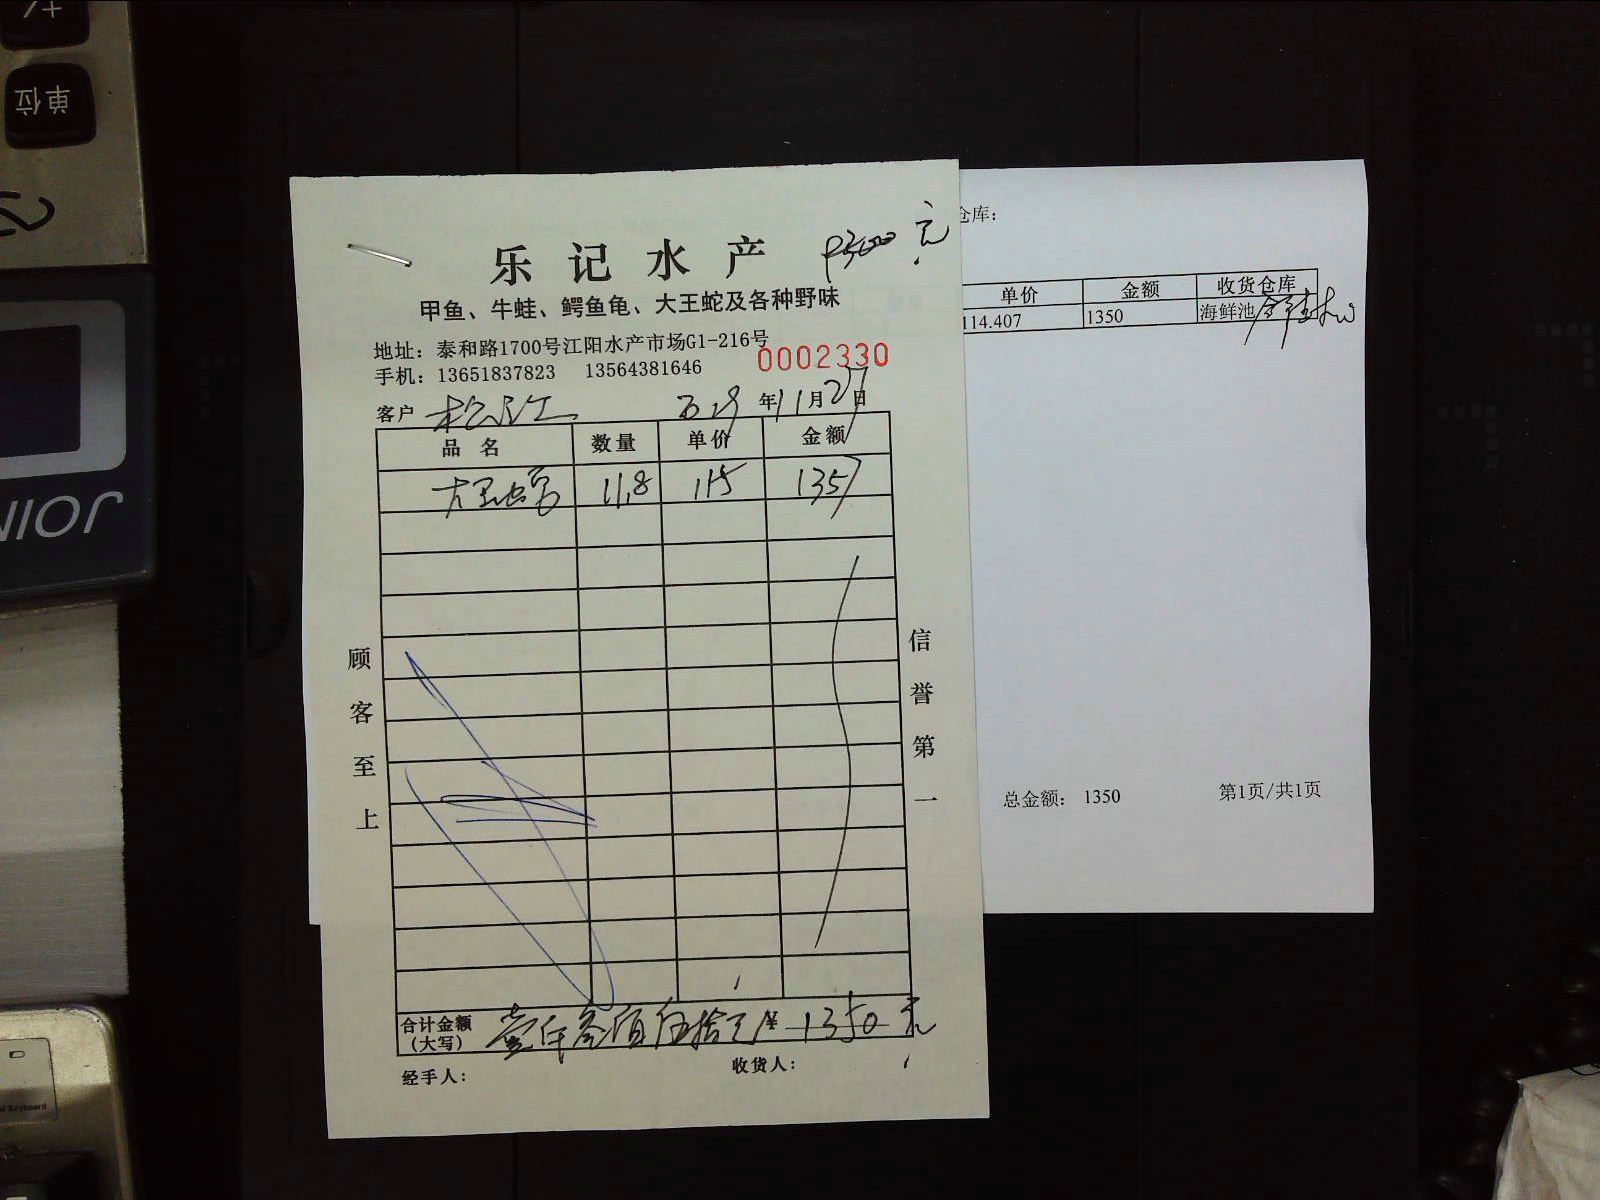 单位
JOIN
乐记水产
元
甲鱼、牛蛙、鳄鱼龟、大王蛇及各种野味
地址：泰和路1700号江阳水产市场G1-216号
手机：13651837823 13564381646
0002330
客户 松江 年11月27日
品名 数量 单价 金额
大王蛇 11.8 115 1357
顾客至上
信誉第一
合计金额（大写） 壹仟叁佰伍拾元 ¥ 1350元
经手人： 收货人：
仓库：
单价 金额 收货仓库
114.407 1350 海鲜池
总金额： 1350 第1页/共1页